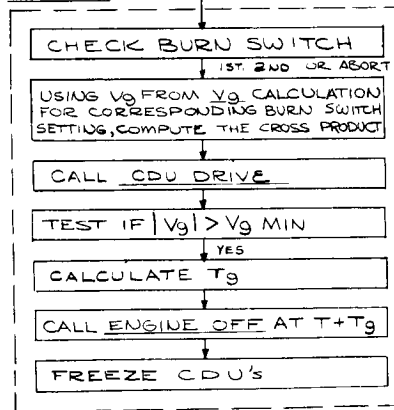 CHECK BURN SWITCH
1ST. 2ND OR ABORT
USING Vg FROM Vg CALCULATION
FOR CORRESPONDING BURN SWITCH
SETTING, COMPUTE THE CROSS PRODUCT
CALL CDU DRIVE
TEST IF |Vg| > Vg MIN
YES
CALCULATE Tg
CALL ENGINE OFF AT T+Tg
FREEZE CDU's